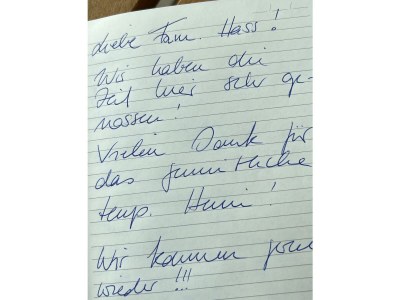 Liebe Fam. Hass!
Wir haben die
Zeit hier sehr ge-
nossen!
Vielen Dank für
das gemütliche
temp. Heim!
Wir kommen gern
wieder!!!